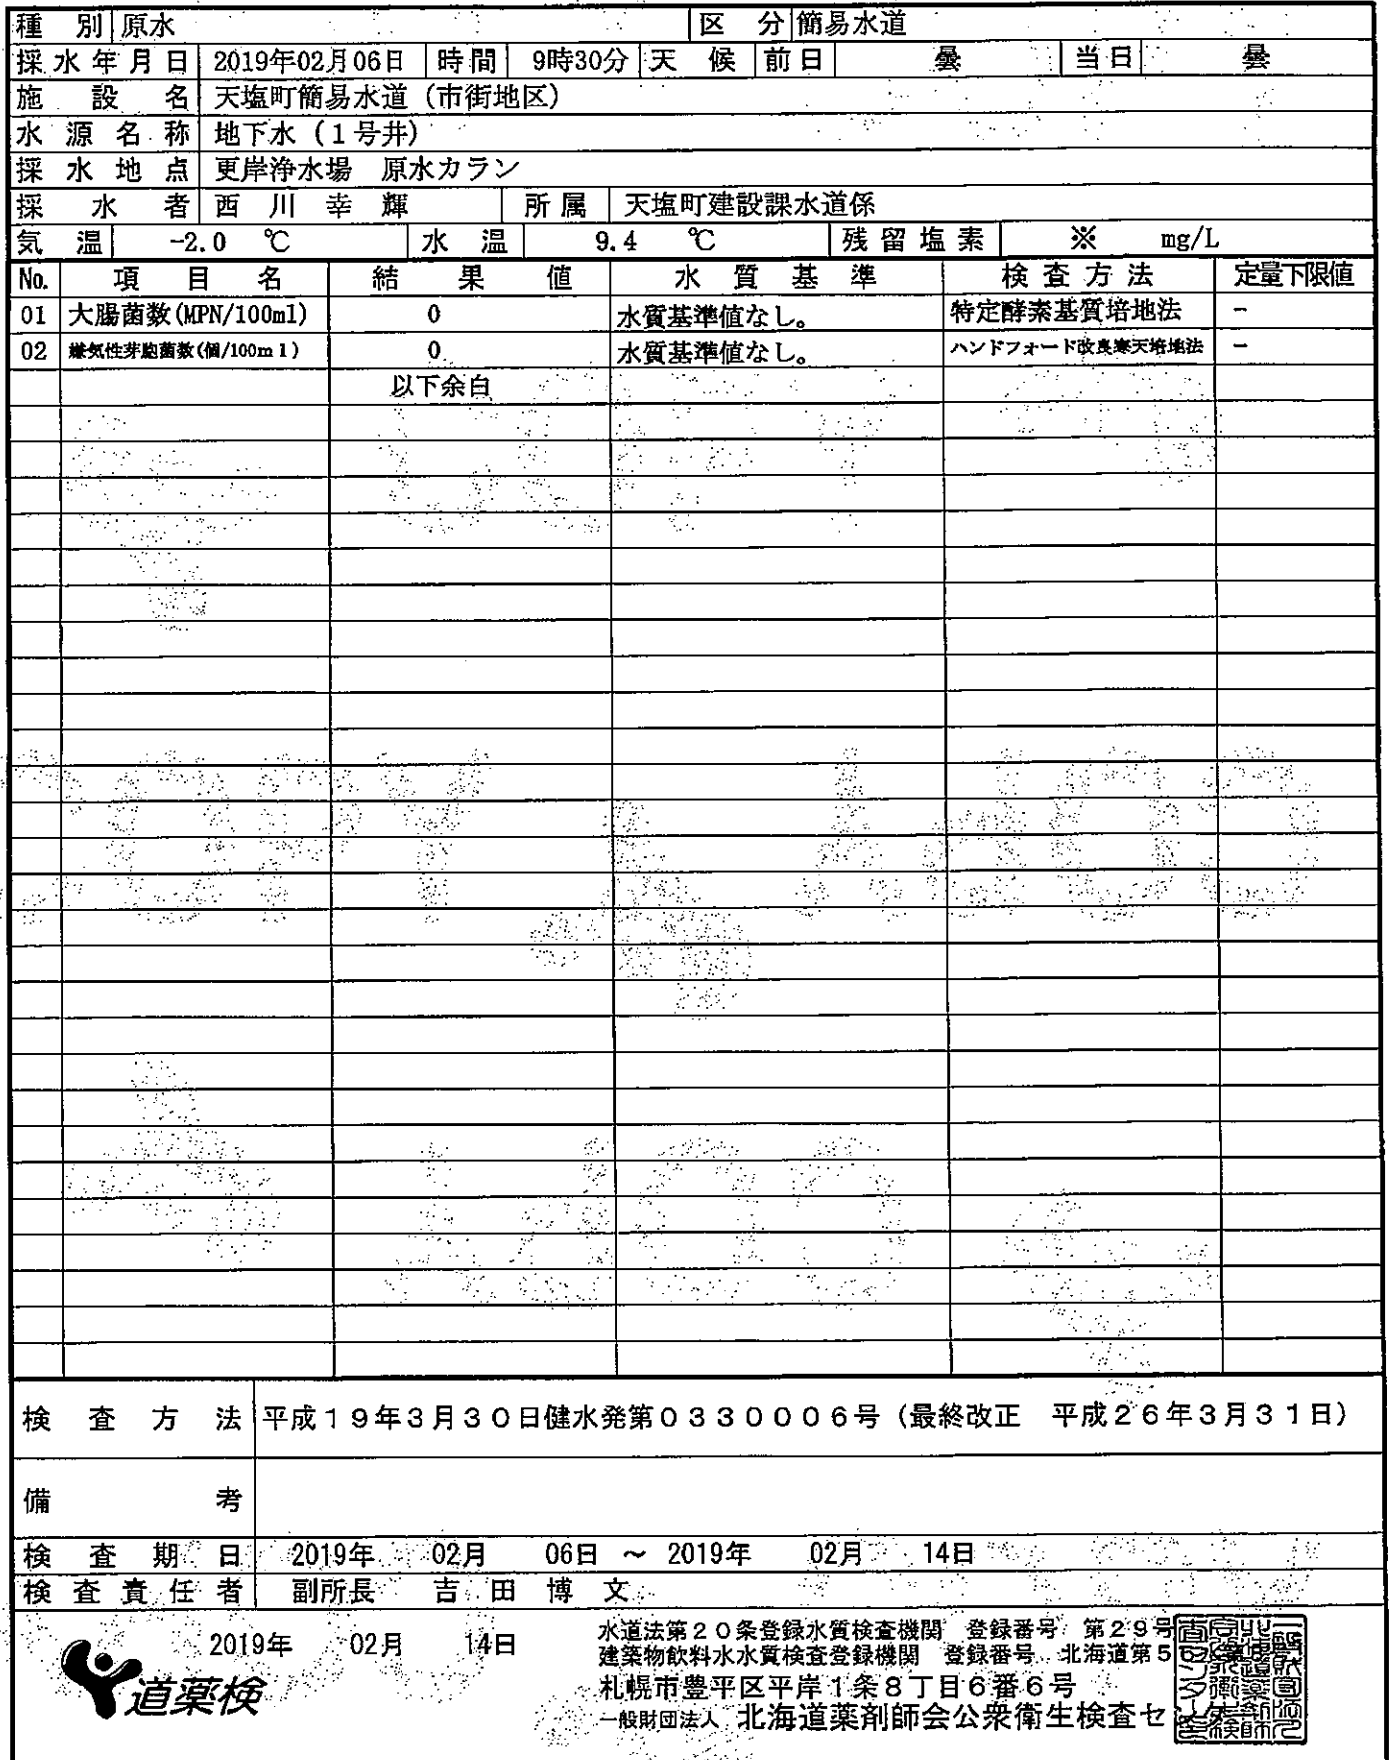 種 別 原水 区 分 簡易水道
採水年月日 2019年02月06日 時間 9時30分 天 候 前日 曇 当日 曇
施 設 名 天塩町簡易水道（市街地区）
水 源 名 称 地下水（1号井）
採 水 地 点 更岸浄水場 原水カラン
採 水 者 西 川 幸 輝 所属 天塩町建設課水道係
気 温 -2.0 ℃ 水 温 9.4 ℃ 残留塩素 ※ mg/L
No. 項 目 名 結 果 値 水 質 基 準 検査方法 定量下限値
01 大腸菌数(MPN/100ml) 0 水質基準値なし。 特定酵素基質培地法 -
02 嫌気性芽胞菌数(個/100ml) 0 水質基準値なし。 ハンドフォード改良寒天培地法 -
以下余白
検 査 方 法 平成１９年３月３０日健水発第０３３０００６号（最終改正 平成２６年３月３１日）
備 考
検 査 期 日 2019年 02月 06日 ～ 2019年 02月 14日
検査責任者 副所長 吉 田 博 文
2019年 02月 14日
水道法第２０条登録水質検査機関 登録番号 第２９号
建築物飲料水水質検査登録機関 登録番号 北海道第５
道薬検
札幌市豊平区平岸１条８丁目６番６号
一般財団法人 北海道薬剤師会公衆衛生検査セ